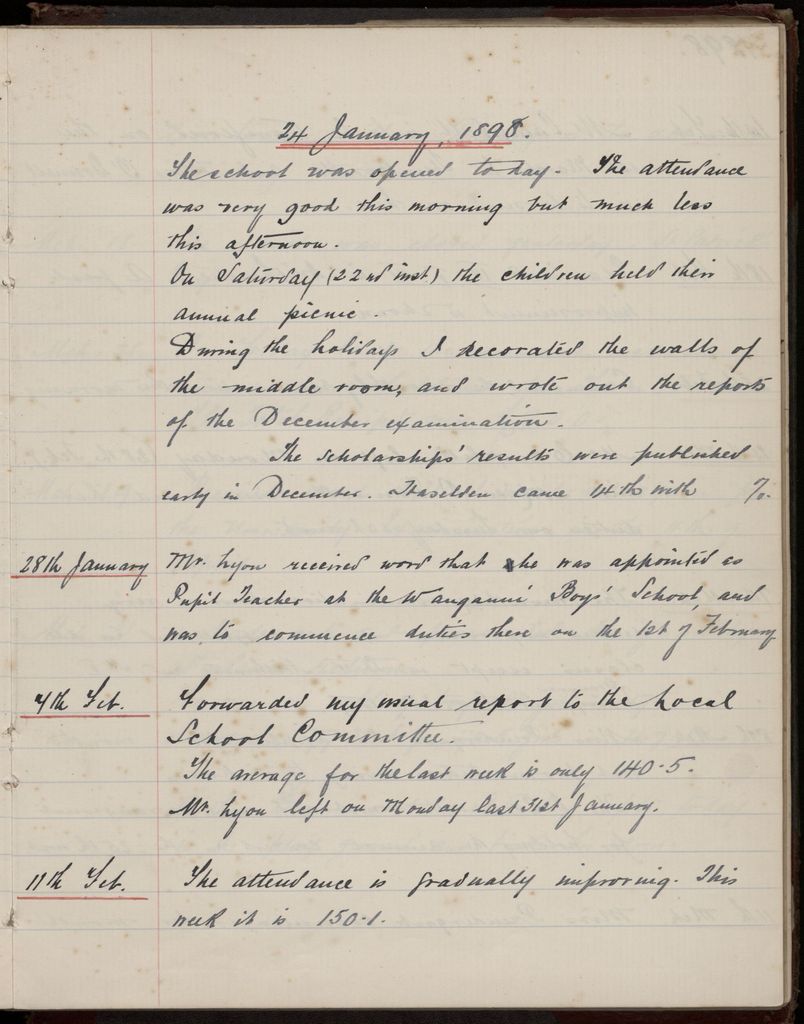 24 January, 1898.
The school was opened to day. The attendance
was very good this morning but much less
this afternoon.
On Saturday (22nd inst) the children held their
annual picnic.
During the holidays I decorated the walls of
the middle room, and wrote out the reports
of the December examination.
The Scholarships' results were published
early in December. Haselden came 14th with %.
28th January Mr. Lyon received word that he was appointed as
Pupil Teacher at the Wanganui Boys' School, and
was to commence duties there on the 1st of February
4th Feb. Forwarded my usual report to the Local
School Committee.
The average for the last week is only 140.5.
Mr. Lyon left on Monday last 31st January.
11th Feb. The attendance is gradually improving. This
week it is 150.1.